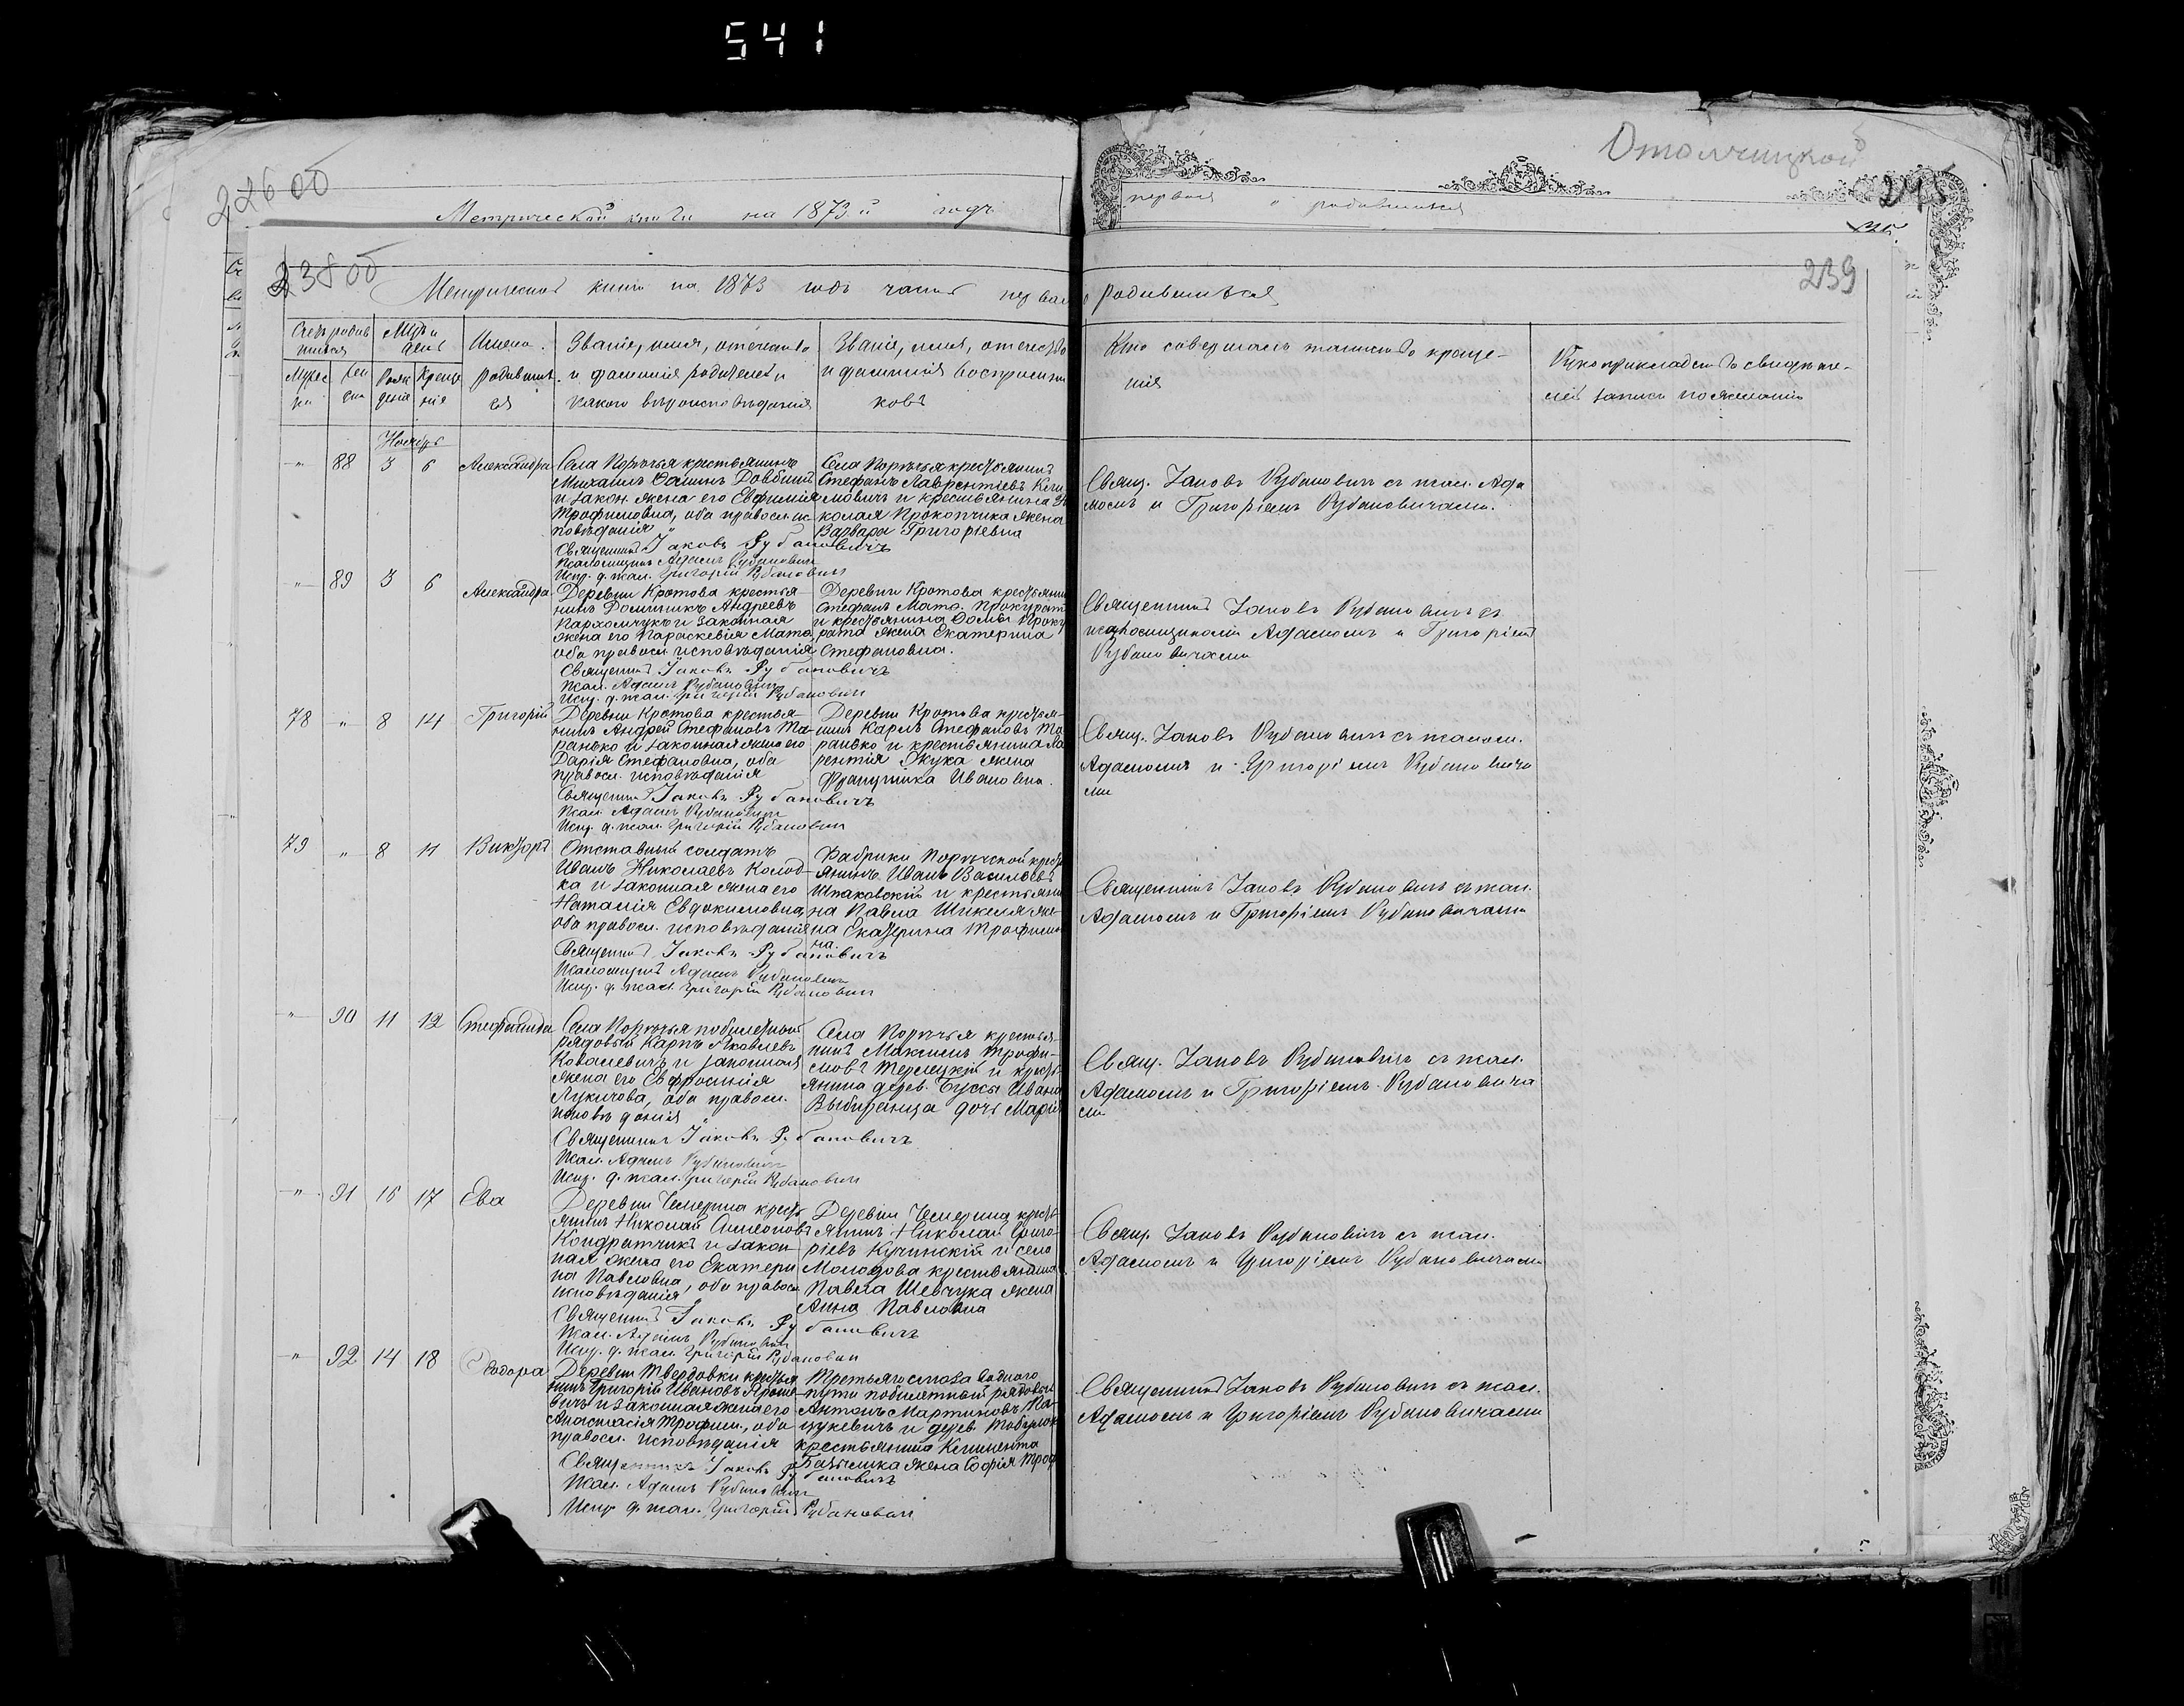 541
Отолчицкой
226 об
Метрической книги на 1873-й годъ
первая о родившихся
238 об
239
Метрической книги на 1873 годъ часть первая о родившихся
Счетъ родив
шихся
Мужес
ка
Жен
ска
Мѣсяцъ и
день
Рож
денія
Креще
нія
Имена
родивших
ся
Званіе, имя, отечество
и фамилія родителей и
какого вѣроисповѣданія
Званіе, имя, отечество
и фамилія воспріемни
ковъ
Кто совершалъ таинство креще-
нія
Рукоприкладство свидѣте-
лей записи по желанію
Ноябрь
" 88 3 6 Александра
Села Порѣчья крестьянинъ
Михаилъ Ѳоминъ Довбый
и закон. жена его Евфимія
Трофимовна, оба правосл. ис
повѣданія
Священникъ Іаковъ Рубановичъ
Псаломщикъ Адамъ Рубановичъ
Испр. д. псал. Григорій Рубанович
Села Порѣчья крестьянинъ
Стефанъ Лаврентіевъ Кли
мовичъ и крестьянина Ни
колая Прокопчика жена
Варвара Григоріевна
Свящ. Іаковъ Рубановичъ съ псал. Ада
момъ и Григоріемъ Рубановичами.
" 89 3 6 Александра
Деревни Кротова крестья-
нинъ Доминикъ Андреевъ
Пархомчукъ и законная
жена его Параскевія Матѳ.
оба правосл. исповѣданія
Священникъ Іаковъ Рубановичъ
Псал. Адамъ Рубановичъ
Испр. д. псал. Григорій Рубанович
Деревни Кротова крестьянин
Стефанъ Матѳ. Прокурат
и крестьянина Ѳомы Проку
рата жена Екатерина
Стефановна.
Священникъ Іаковъ Рубановичъ съ
псаломщиками Адамомъ и Григоріем
Рубановичами
78 " 8 14 Григорій
Деревни Кротова крестья-
нинъ Андрей Стефановъ Та-
ранько и законная жена его
Дарія Стефановна, оба
правосл. исповѣданія
Священникъ Іаковъ Рубановичъ
Псал. Адамъ Рубановичъ
Испр. д. псал. Григорій Рубанович
Деревни Кротова крестья-
нинъ Карлъ Стефановъ Та
ранько и крестьянина Ла
рентія Жука жена
Францишка Ивановна.
Свящ. Іаковъ Рубановичъ съ псалом.
Адамомъ и Григоріемъ Рубановича
ми
79 " 8 11 Викторъ
Отставный солдатъ
Иванъ Николаевъ Колод-
ка и законная жена его
Наталія Евдокимовна,
оба правосл. исповѣданія
Священникъ Іаковъ Рубановичъ
Псаломщикъ Адамъ Рубановичъ
Испр. д. псал. Григорій Рубанович
Фабрики Порѣчской кресть
янинъ Иванъ Василіевъ
Шпаковскій и крестьяни
на Павла Шикеля же-
на Екатерина Трофимов
на.
Священникъ Іаковъ Рубановичъ съ псал.
Адамомъ и Григоріемъ Рубановичами
" 90 11 12 Стефанида
Села Порѣчья побилетный
рядовый Карпъ Яковлевъ
Ковалевичъ и законная
жена его Евфросинія
Лукичова, оба правосл.
исповѣданія
Священникъ Іаковъ Рубановичъ
Псал. Адамъ Рубановичъ
Испр. д. псал. Григорій Рубанович
Села Порѣчья крестья-
нинъ Максимъ Трофи-
мовъ Терлецкій и кресть
янина дерев. Бусы Ивана
Выбиранца дочь Марія
Свящ. Іаковъ Рубановичъ съ псал.
Адамомъ и Григоріемъ Рубановича
ми
" 91 16 17 Ева
Деревни Чемерина кресть
янинъ Николай Симеоновъ
Кондратчикъ и закон-
ная жена его Екатери
на Павловна, оба правосл.
исповѣданія
Священникъ Іаковъ Рубановичъ
Псал. Адамъ Рубановичъ
Испр. д. псал. Григорій Рубанович
Деревни Чемерина кресть
янинъ Николай Григо-
ріевъ Кучинскій и села
Молодова крестьянина
Павла Шевчука жена
Анна Павловна
Свящ. Іаковъ Рубановичъ съ псал.
Адамомъ и Григоріемъ Рубановичами
" 92 14 18 Ѳеодора
Деревни Твердовки крестья
нинъ Григорій Ивановъ
и законная жена его
Анастасія Трофим., оба
правосл. исповѣданія
Священникъ Іаковъ Рубановичъ
Псал. Адамъ Рубановичъ
Испр. д. псал. Григорій Рубанович
Третьяго Водного
пути побилетный рядовый
Антонъ Мартиновъ
и дерев.
крестьянина Климента
жена Софія Троф
Священникъ Іаковъ Рубановичъ съ псал.
Адамомъ и Григоріемъ Рубановичами